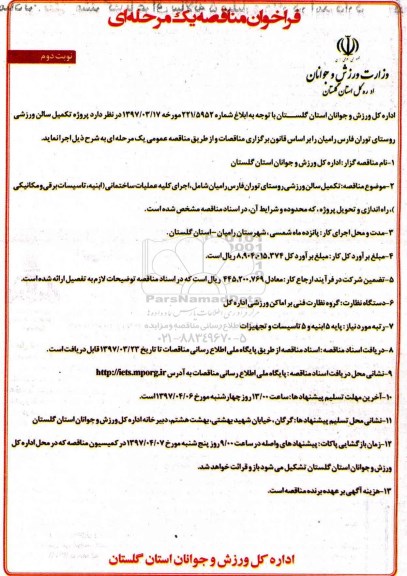 فراخوان مناقصه یک مرحله ای
نوبت دوم
وزارت ورزش و جوانان
اداره کل استان گلستان
اداره کل ورزش و جوانان استان گلستـان با توجه به ابلاغ شماره ۲۲۱/۵۹۵۲ مورخه ۱۳۹۷/۰۳/۱۷ در نظر دارد پروژه تکمیل سالن ورزشی
روستای توران فارس رامیان را بر اساس قانون برگزاری مناقصات و از طریق مناقصه عمومی یک مرحله ای به شرح ذیل اجرا نماید.
۱-نام مناقصه گزار : اداره کل ورزش و جوانان استان گلستان
۲-موضوع مناقصه: تکمیل سالن ورزشی روستای توران فارس رامیان شامل، اجرای کلیه عملیات ساختمانی (ابنیه، تاسیسات برقی و مکانیکی
)، راه اندازی و تحویل پروژه ، که محدوده و شرایط آن، در اسناد مناقصه مشخص شده است.
۳-مدت و محل اجرای کار : پانزده ماه شمسی ، شهرستان رامیان – استان گلستان.
۴-مبلغ برآورد کل کار : مبلغ برآورد کل ۸.۹۰۴.۰۱۵.۳۷۴ ریال است.
۵-تضمین شرکت در فرآیند ارجاع کار : معادل ۴۴۵.۲۰۰.۷۶۹ ریال است که در اسناد مناقصه توضیحات لازم به تفصیل ارائه شده است.
۶-دستگاه نظارت: گروه نظارت فنی بر اماکن ورزشی اداره کل
۷-رتبه مورد نیاز : پایه ۵ ابنیه و ۵ تاسیسات و تجهیزات
۸-دریافت اسناد مناقصه : اسناد مناقصه از طریق پایگاه ملی اطلاع رسانی مناقصات تا تاریخ ۱۳۹۷/۰۳/۲۳ قابل دریافت است.
۹-نشانی محل دریافت اسناد مناقصه : پایگاه ملی اطلاع رسانی مناقصات به آدرس http://iets.mporg.ir
۱۰-آخرین مهلت تسلیم پیشنهاد ها: ساعت ۱۳/۰۰ روز چهارشنبه مورخ ۱۳۹۷/۰۴/۰۶ است.
۱۱-نشانی محل تسلیم پیشنهادها : گرگان ، خیابان شهید بهشتی، بهشت هشتم، دبیرخانه اداره کل ورزش و جوانان استان گلستان
۱۲-زمان بازگشایی پاکات : پیشنهادهای واصله در ساعت ۹/۰۰ روز پنج شنبه مورخ ۱۳۹۷/۰۴/۰۷ در کمیسیون مناقصه که در محل اداره کل
ورزش و جوانان استان گلستان تشکیل می شود باز و قرائت خواهد شد.
۱۳-هزینه آگهی بر عهده برنده مناقصه است.
ParsNamadData
۰۲۱-۸۸۳۴۹۶۷۰-۵
اداره کل ورزش و جوانان استان گلستان